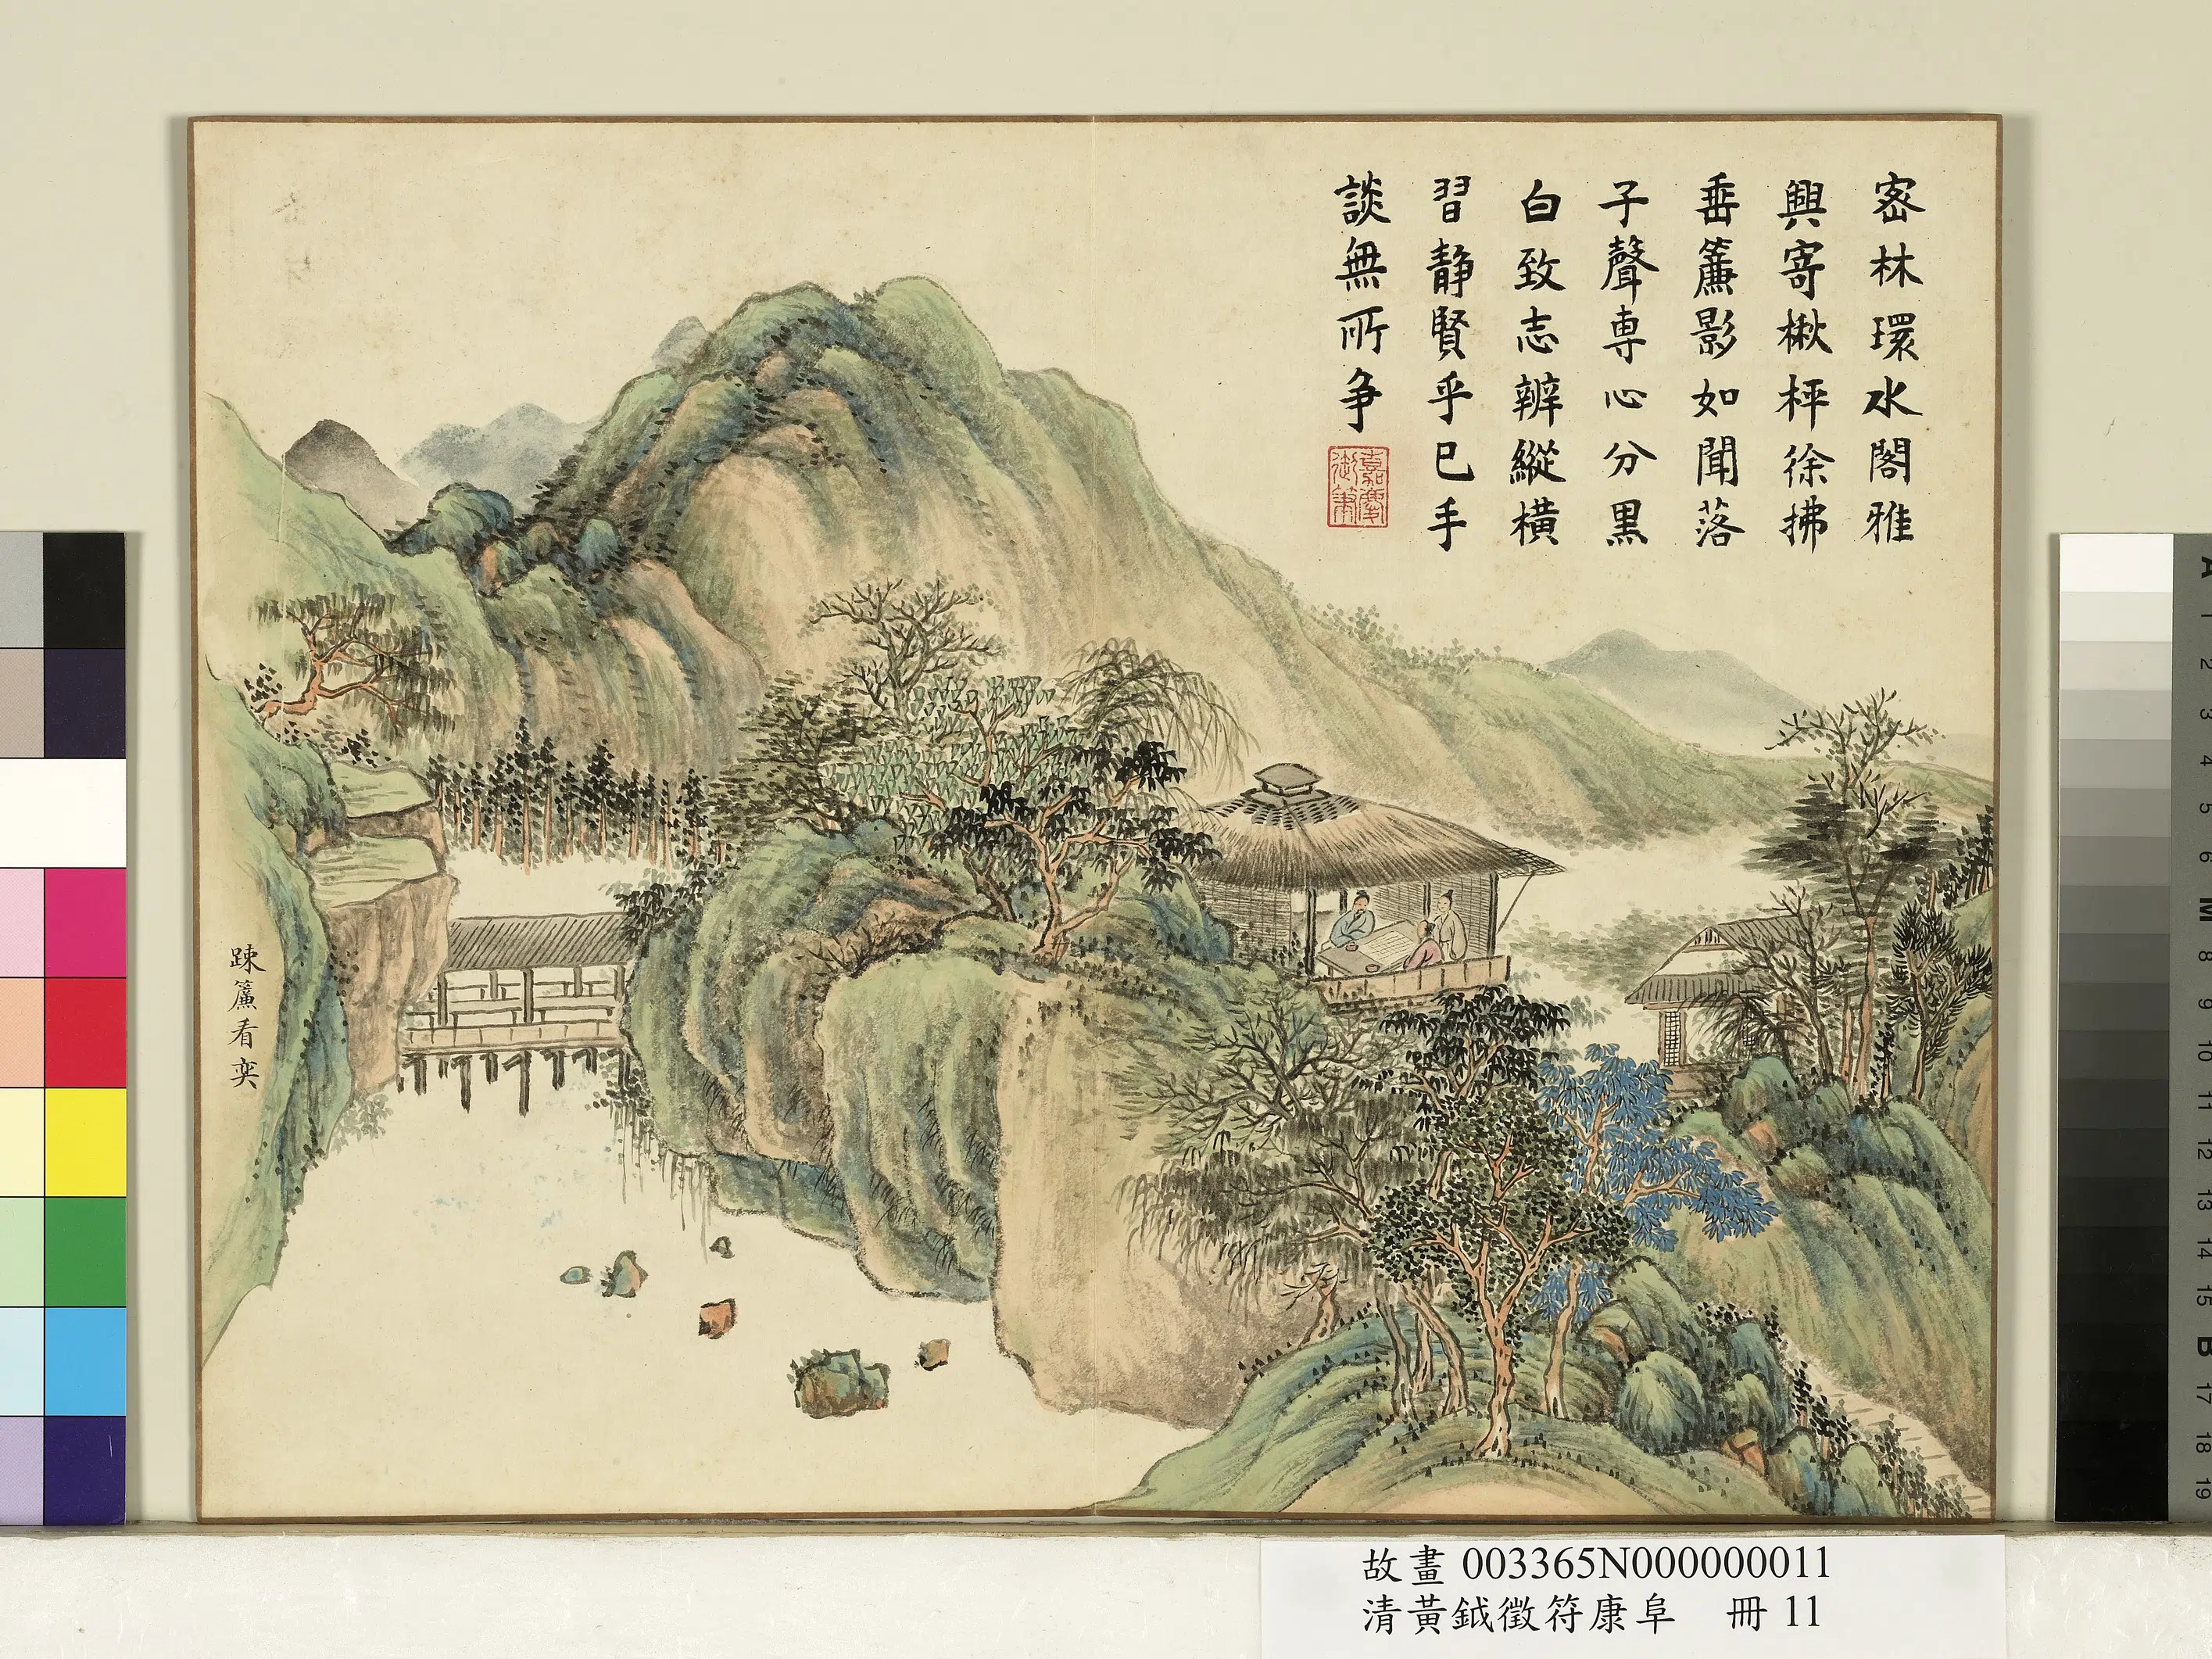 密林環水閣雅
興寄楸枰徐拂
垂簾影如聞落
子聲専心分黒
白致志辨縱橫
習静賢乎已手
談無所争
嘉慶
御筆
疎簾看奕
故畫 003365N000000011
清黃鉞徵符康阜 冊 11
A
1
2
3
4
5
6
M
8
9
10
11
12
13
14
15
B
17
18
19